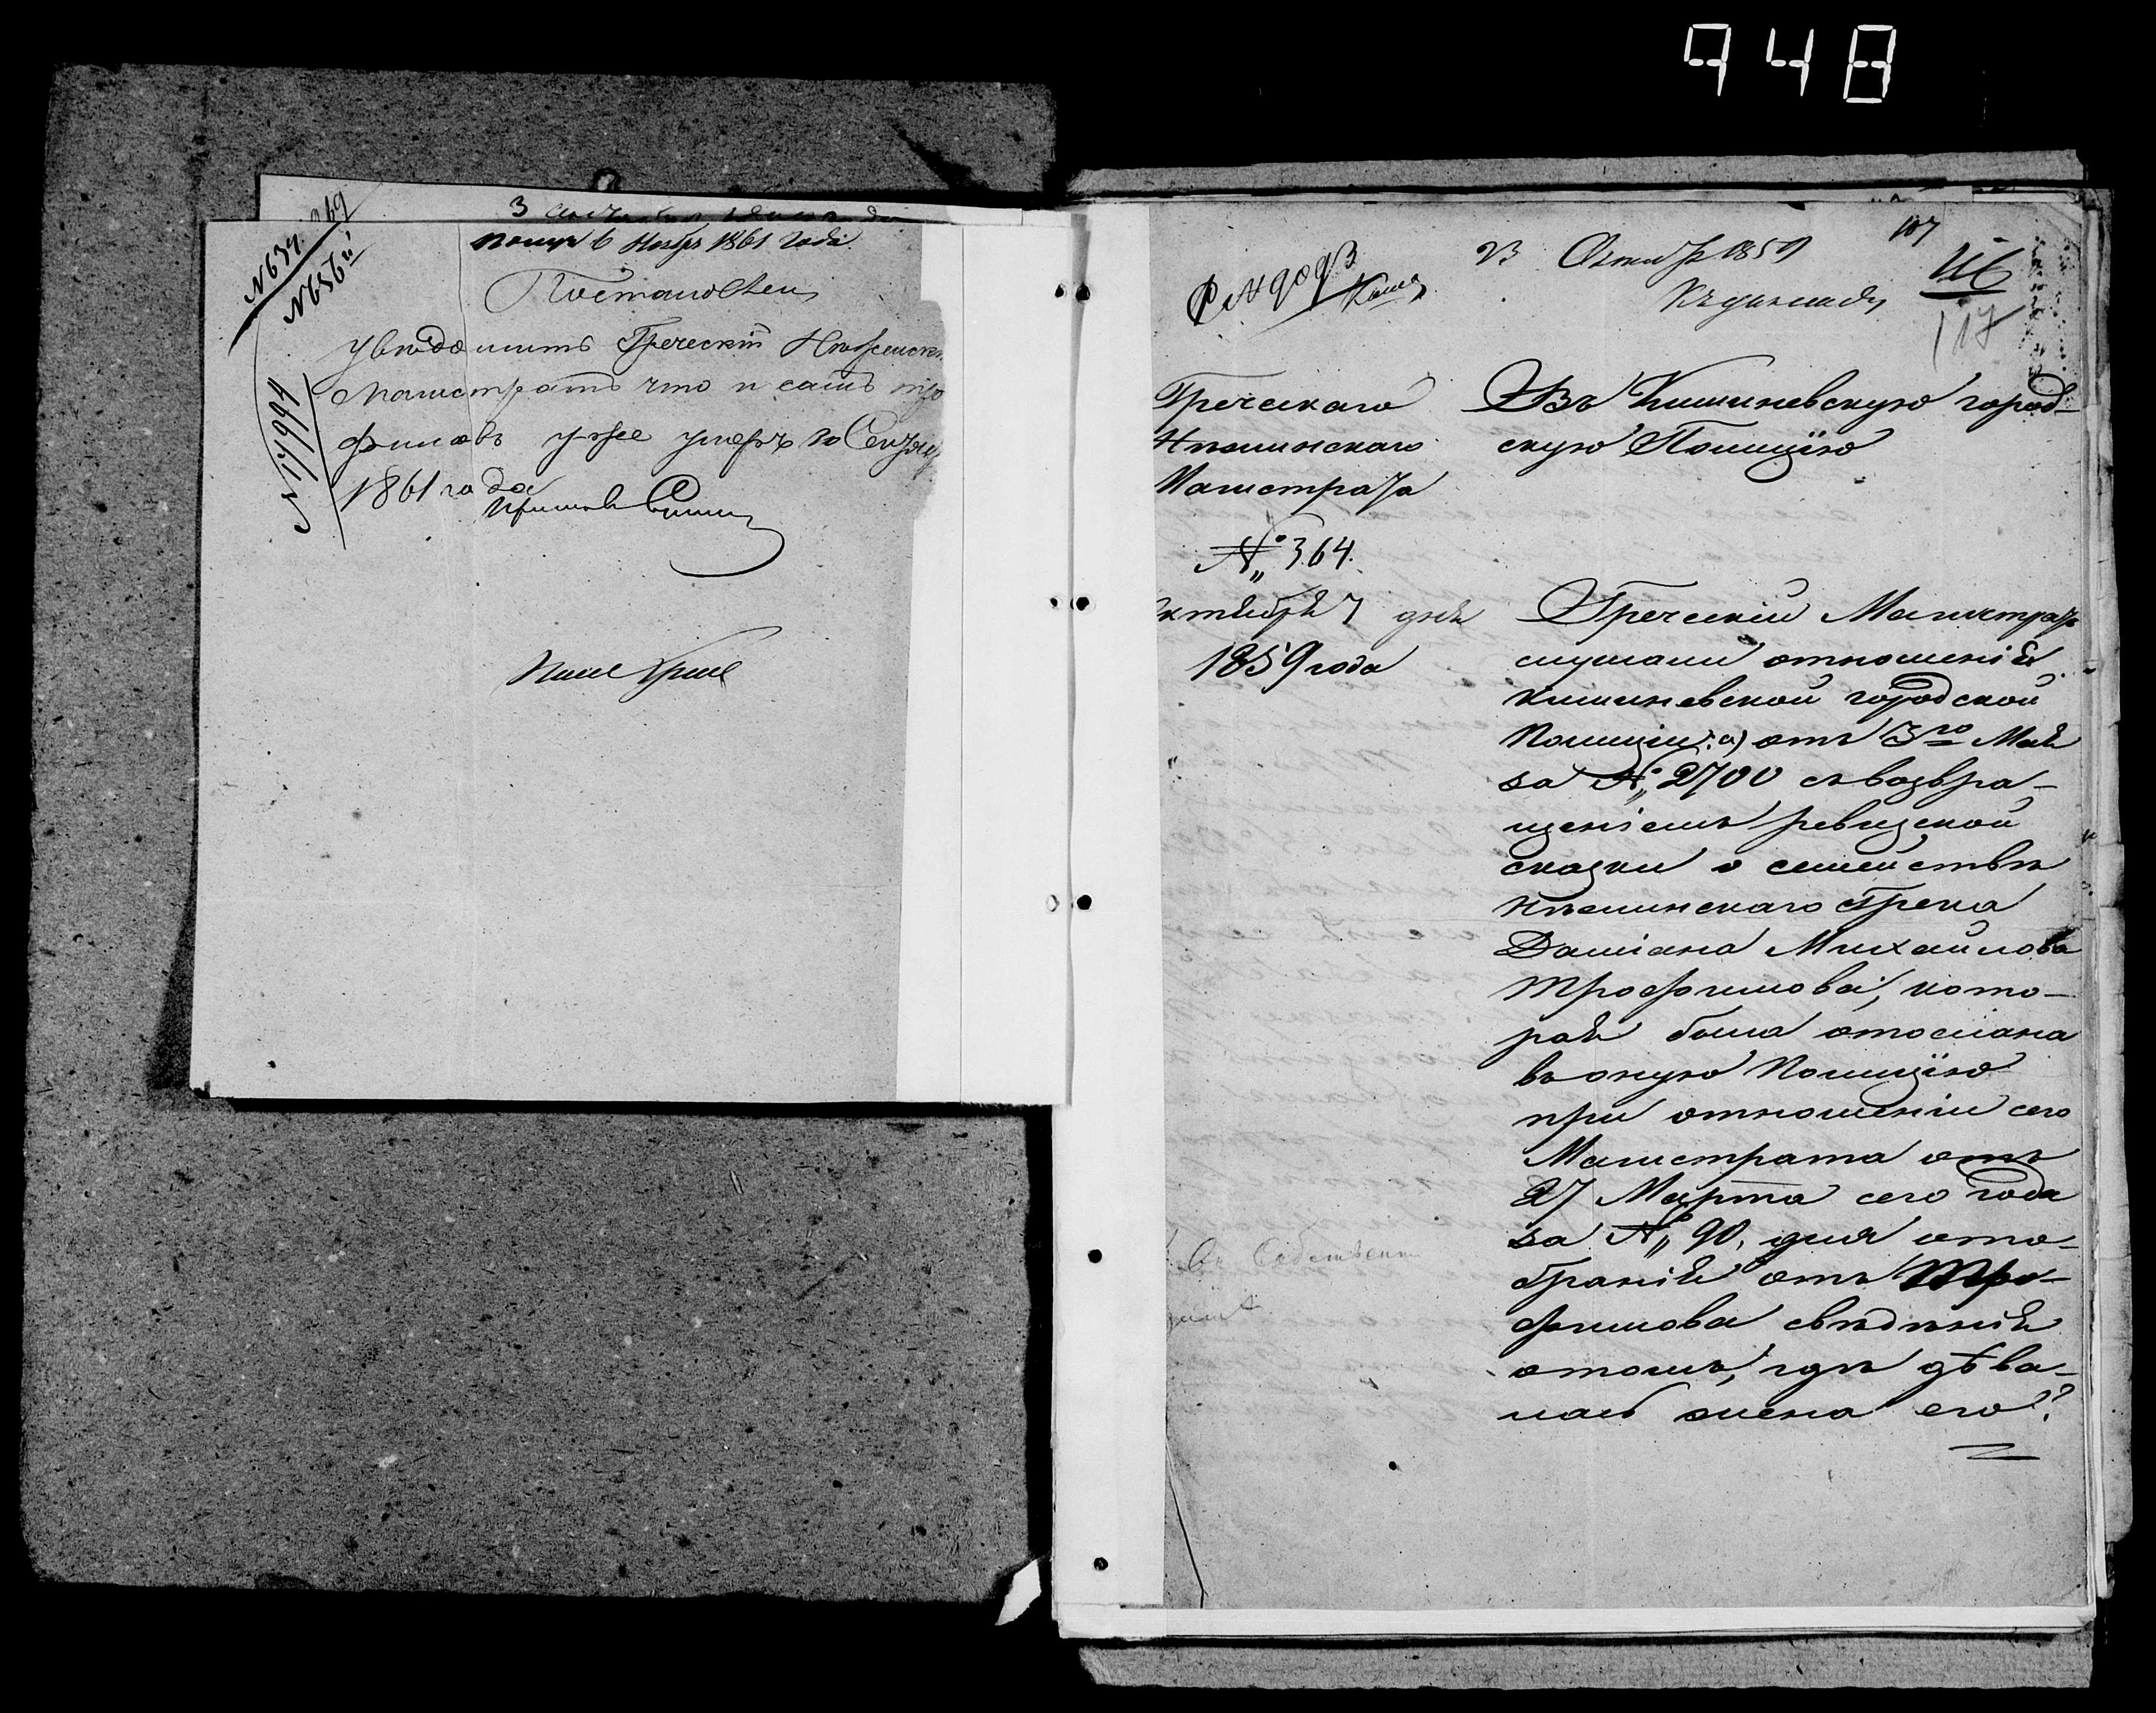 948
№ 634
№ 656
№ 17994
6 Ноября 1861 года
Постановлен
Увѣдомить Греческій Нѣжинск
Магистратъ что и самъ тро
фимовъ уже умеръ
1861 года
107
23 Октяб 1859
Къ докладу
116
117
Греческаго
Нѣжинскаго
Магистрата
№ 364.
ктября 7 дня
1859 года
Въ Кишиневскую город-
скую Полицію
Греческій Магистратъ
слушали отношенія
Кишиневской городской
Полиціи: а) отъ 3го Мая
за № 2700 съ возвра-
щеніемъ ревизской
сказки о семействѣ
Нѣжинскаго Грека
Даміана Михайлова
Трофимова, кото-
рая была отослана
въ оную Полицію
при отношеніи сего
Магистрата отъ
27 Марта сего года
за № 90, для ото-
бранія отъ Тро-
фимова свѣдѣнія
отомъ, гдѣ дѣва-
лась жена его?